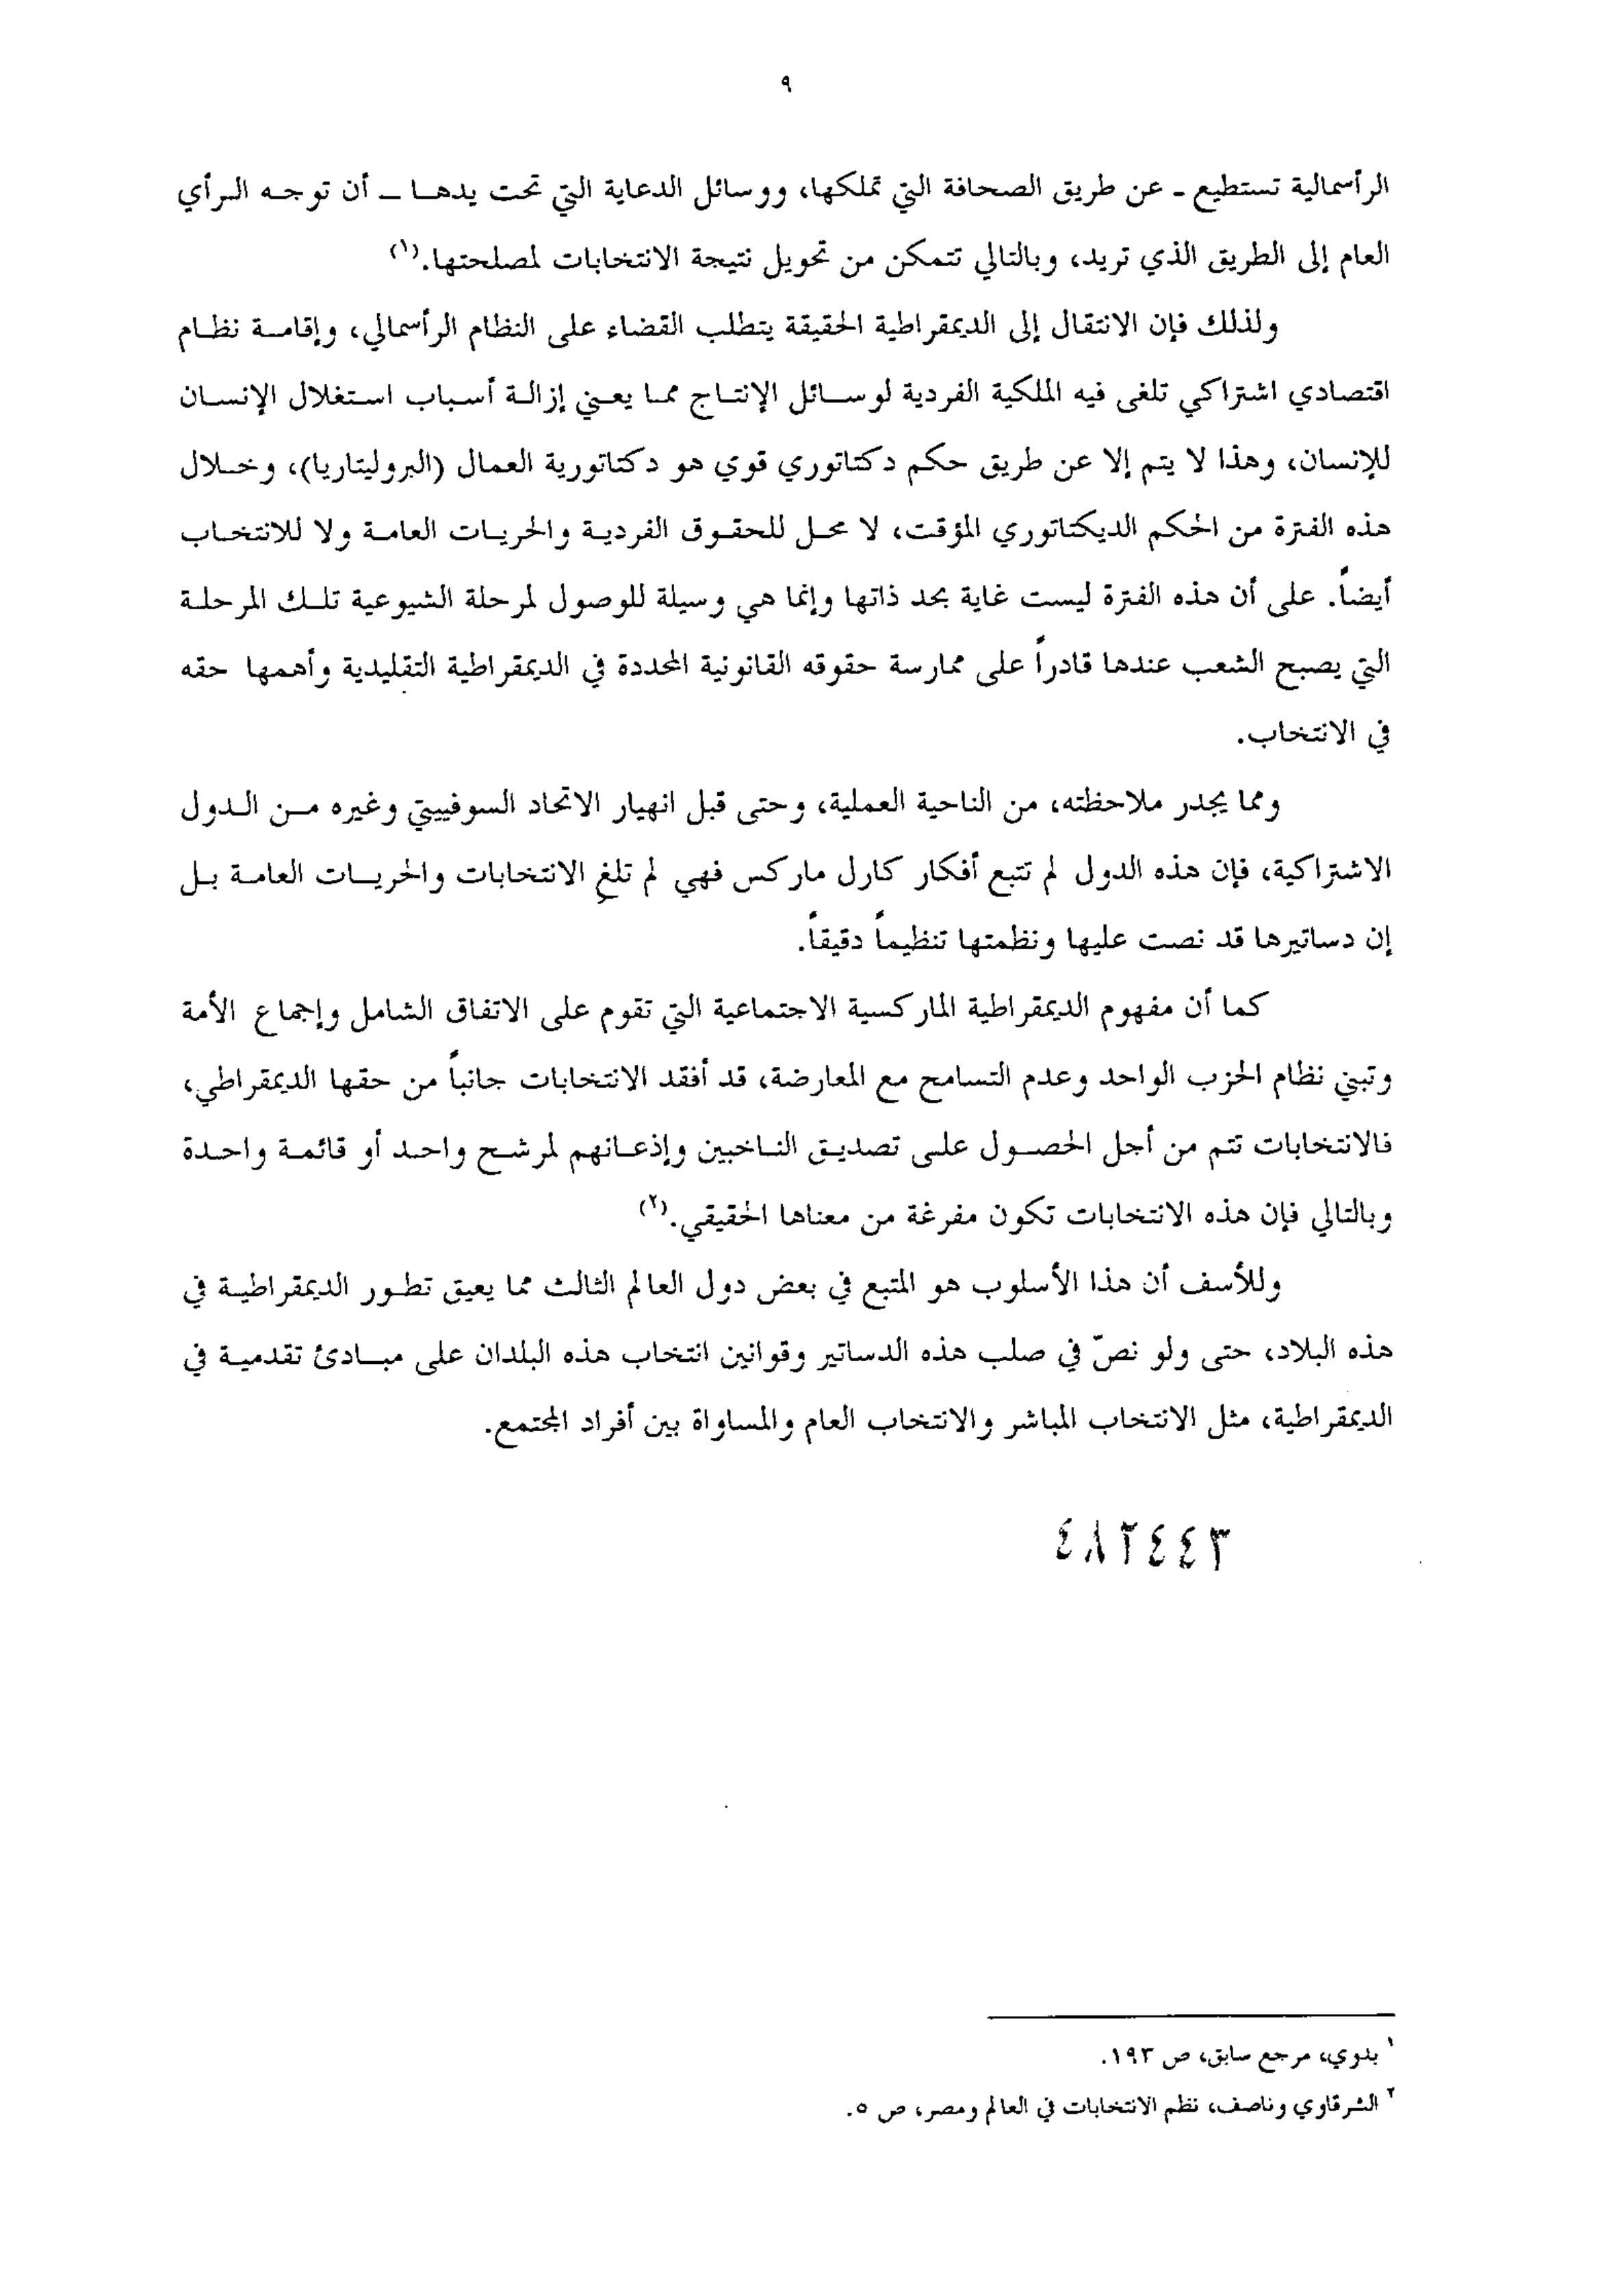 ٩
الرأسمالية تستطيع - عن طريق الصحافة التي تملكها، ووسائل الدعاية التي تحت يدها - أن توجه الرأي
العام إلى الطريق الذي تريد، وبالتالي تتمكن من تحويل نتيجة الانتخابات لمصلحتها.(١)
ولذلك فإن الانتقال إلى الديمقراطية الحقيقة يتطلب القضاء على النظام الرأسمالي، وإقامة نظام
اقتصادي اشتراكي تلغى فيه الملكية الفردية لوسائل الإنتاج مما يعني إزالة أسباب استغلال الإنسان
للإنسان، وهذا لا يتم إلا عن طريق حكم دكتاتوري قوي هو دكتاتورية العمال (البروليتاريا)، وخلال
هذه الفترة من الحكم الديكتاتوري المؤقت، لا محل للحقوق الفردية والحريات العامة ولا للانتخاب
أيضاً. على أن هذه الفترة ليست غاية بحد ذاتها وإنما هي وسيلة للوصول لمرحلة الشيوعية تلك المرحلة
التي يصبح الشعب عندها قادراً على ممارسة حقوقه القانونية المحددة في الديمقراطية التقليدية وأهمها حقه
في الانتخاب.
ومما يجدر ملاحظته، من الناحية العملية، وحتى قبل انهيار الاتحاد السوفييتي وغيره من الدول
الاشتراكية، فإن هذه الدول لم تتبع أفكار كارل ماركس فهي لم تلغِ الانتخابات والحريات العامة بل
إن دساتيرها قد نصت عليها ونظمتها تنظيماً دقيقاً.
كما أن مفهوم الديمقراطية الماركسية الاجتماعية التي تقوم على الاتفاق الشامل وإجماع الأمة
وتبني نظام الحزب الواحد وعدم التسامح مع المعارضة، قد أفقد الانتخابات جانباً من حقها الديمقراطي،
فالانتخابات تتم من أجل الحصول على تصديق الناخبين وإذعانهم لمرشح واحد أو قائمة واحدة
وبالتالي فإن هذه الانتخابات تكون مفرغة من معناها الحقيقي.(٢)
وللأسف أن هذا الأسلوب هو المتبع في بعض دول العالم الثالث مما يعيق تطور الديمقراطية في
هذه البلاد، حتى ولو نصّ في صلب هذه الدساتير وقوانين انتخاب هذه البلدان على مبادئ تقدمية في
الديمقراطية، مثل الانتخاب المباشر والانتخاب العام والمساواة بين أفراد المجتمع.
٤٨٢٤٤٣
١ بدوي، مرجع سابق، ص ١٩٣.
٢ الشرقاوي وناصف، نظم الانتخابات في العالم ومصر، ص ٥.